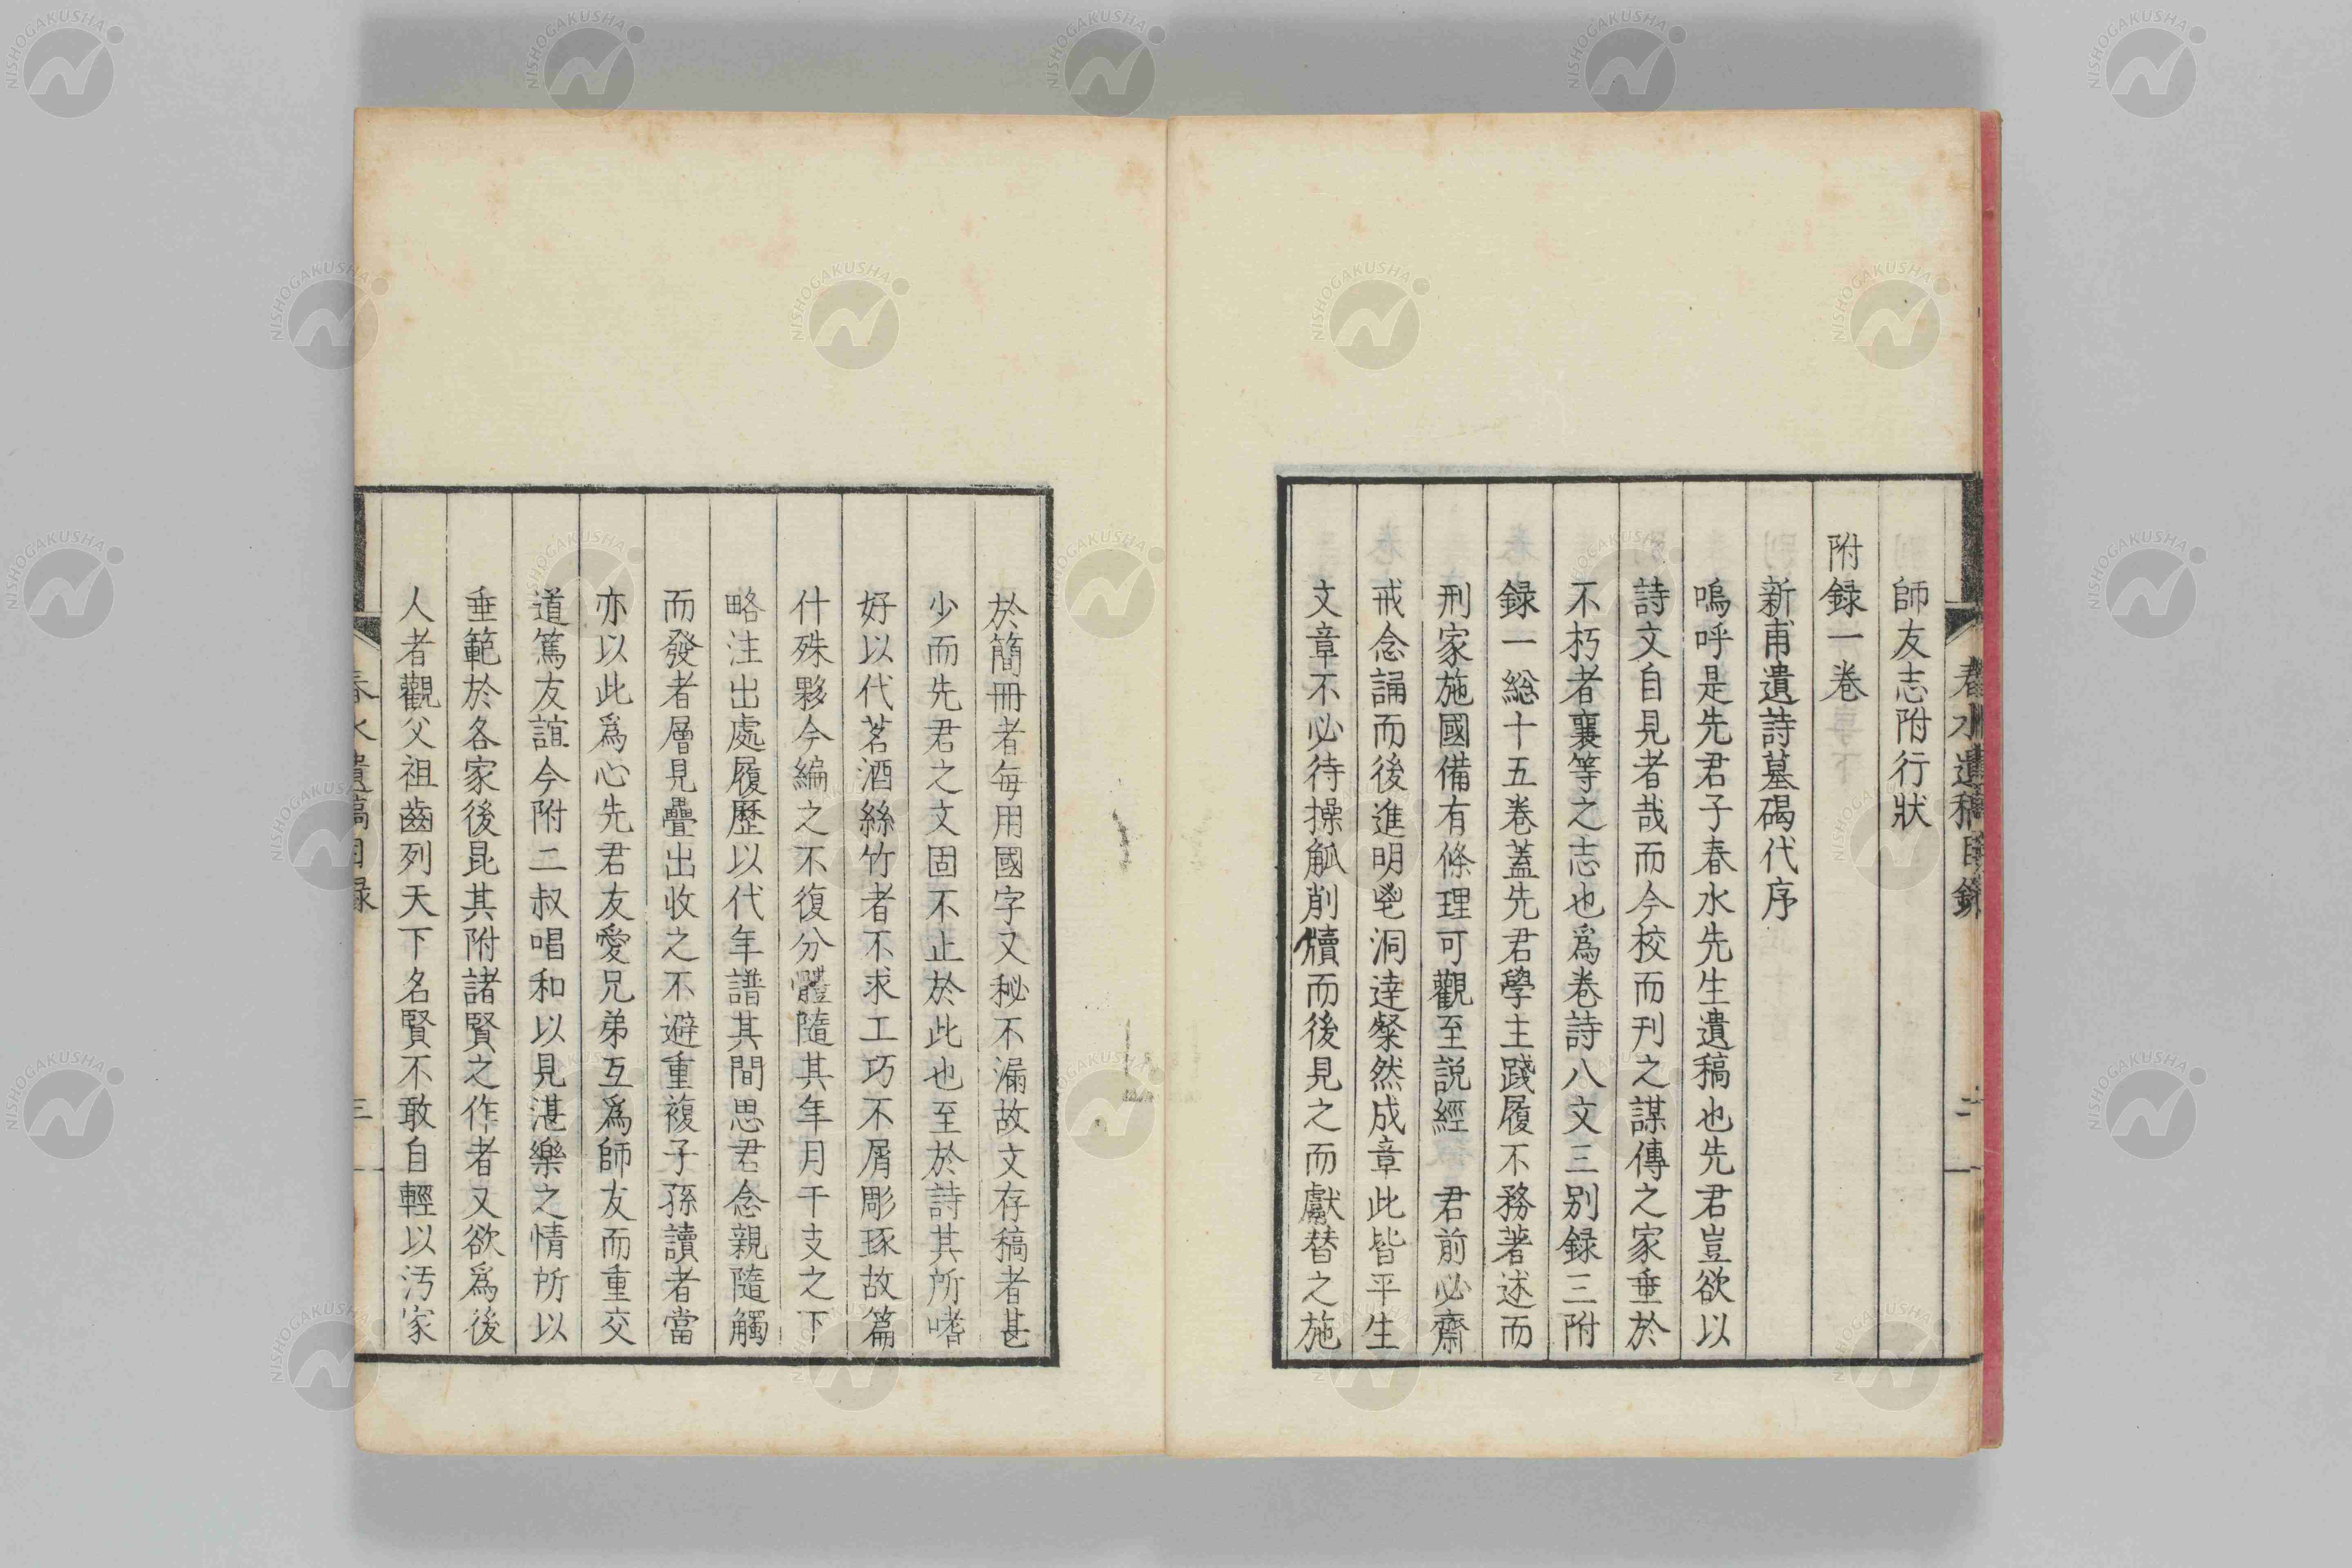 春水遺稿目錄
二
師友志附行狀
附録一卷
新甫遺詩墓碣代序
嗚呼是先君子春水先生遺稿也先君豈欲以
詩文自見者哉而今校而刊之謀傳之家垂於
不朽者襄等之志也爲卷詩八文三別録三附
録一総十五卷蓋先君學主踐履不務著述而
刑家施國備有條理可觀至説經 君前必齋
戒念誦而後進明鬯洞達粲然成章此皆平生
文章不必待操觚削牘而後見之而獻替之施
於簡冊者每用國字又秘不漏故文存稿者甚
少而先君之文固不止於此也至於詩其所嗜
好以代茗酒絲竹者不求工巧不屑彫琢故篇
什殊夥今編之不復分體隨其年月干支之下
略注出處履歷以代年譜其間思君念親隨觸
而發者層見疊出收之不避重複子孫讀者當
亦以此爲心先君友愛兄弟互爲師友而重交
道篤友誼今附二叔唱和以見湛樂之情所以
垂範於各家後昆其附諸賢之作者又欲爲後
人者觀父祖齒列天下名賢不敢自輕以汚家
春水遺稿目録
三
NISHOGAKUSHA